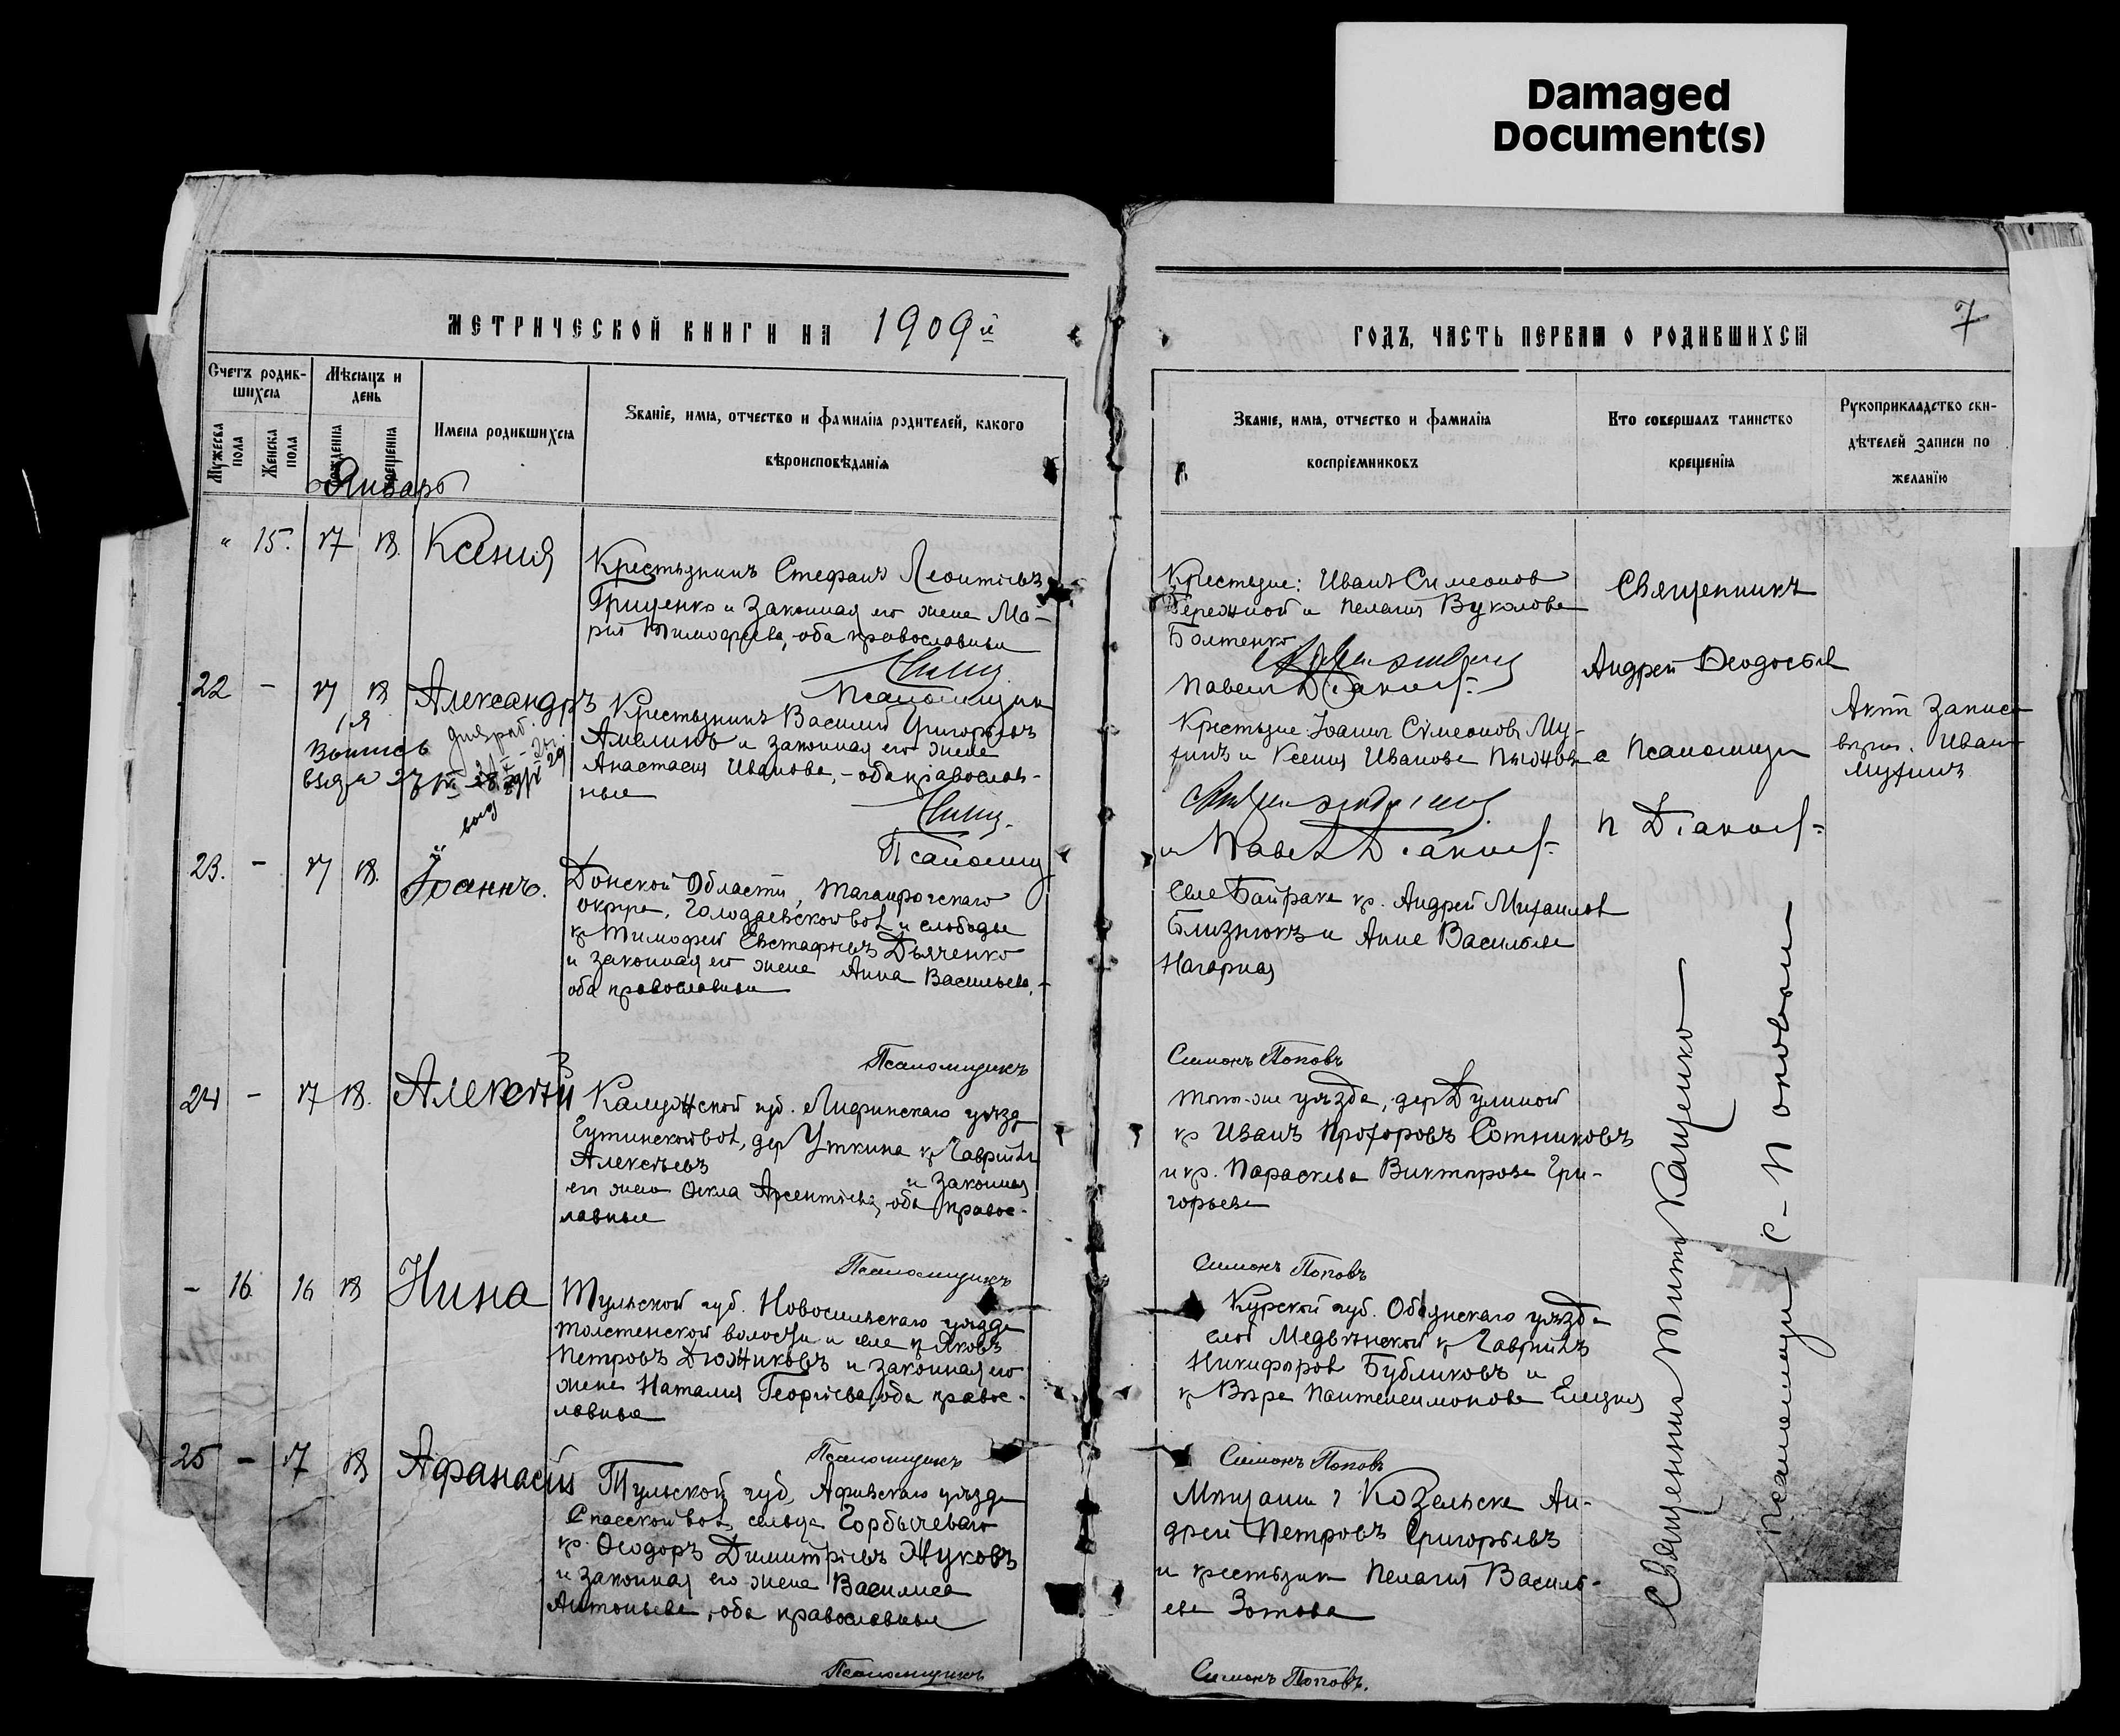 Damaged
Document(s)
МЕТРИЧЕСКОЙ КНИГИ НА 1909й
ГОДЪ, ЧАСТЬ ПЕРВАЯ О РОДИВШИХСЯ
7
Счетъ родив-
шихся
Мѣсяцъ и
день
Имена родившихся
Званіе, имя, отчество и фамилія родителей, какого
вѣроисповѣданія
Мужеска
пола
Женска
пола
рожденія
крещенія
Званіе, имя, отчество и фамилія
воспріемниковъ
Кто совершалъ таинство
крещенія
Рукоприкладство сви-
дѣтелей записи по
желанію
Январь
" 15. 17 18. Ксенія
Крестьянинъ Стефанъ Леонтіевъ
Гриценко и законная его жена Ма-
рія Тимофеева, оба православные
Крестьяне: Иванъ Симеонов
Бережной и Пелагія Вуколова
Болтенко
Священникъ
Андрей Феодосьев
Псаломщик
Павелъ Діакон
22 - 17 18 Александръ
Крестьянинъ Василій Григорьевъ
Амелинъ и законная его жена
Анастасія Иванова, - оба православ-
ные
Крестьяне Іоаннъ Симеоновъ Му-
хинъ и Ксенія Иванова
и Псаломщик
П Діакон
Актъ записи
Иван
Мухинъ
Псаломщ
и Павел Діакон
23. - 17 18. Іоаннъ.
Донской Области, Таганрогскаго
округа, Голодаевской вол и слободы
кр Тимофей Евстафіевъ Дьяченко
и законная его жена Анна Васильева, -
оба православные
Села Байрака кр. Андрей Михаилов
Близнюкъ и Анна Васильева
Нагорная
Псаломщикъ
Симонъ Поповъ
24 - 17 18. Алексѣй
Калужской губ. Лифинскаго уѣзд
Гутинской вол, дер Уткина кр Гаврііл
Алексѣевъ
и законная
его жена Ѳекла Арсентіева, оба правос-
лавные
Того-же уѣзда, дер Дулиной
кр Иванъ Прохоровъ Сотниковъ
и кр. Параскева Викторова Гри-
горьева
Псаломщикъ
Симонъ Поповъ
- 16. 16 18 Нина
Тульской губ. Новосильскаго уѣзда
Толстенской волости и села кр Яковъ
Петровъ Дюжиковъ и законная его
жена Наталія Георгіева, оба правос-
лавные
Курской губ. Обоянскаго уѣзда
слоб Медвѣнской кр Гавріилъ
Никифоров Бубликовъ и
кр Вѣра Пантелеимонова Елецкая
Псаломщикъ
Симонъ Поповъ
25 - 17 18 Афанасій
Тульской губ, уѣзда
Спасской вол, сельца Горбачеваго
кр. Ѳеодоръ Димитріевъ Жуковъ
и законная его жена Василиса
Антоньева, оба православные
Мѣщанин г Козельска Ан-
дрей Петровъ Григорьевъ
и крестьянка Пелагія Василь-
ева Зотова
Псаломщикъ
Симонъ Поповъ.
Священникъ Титъ Кащенко
Псаломщик С. Поповым